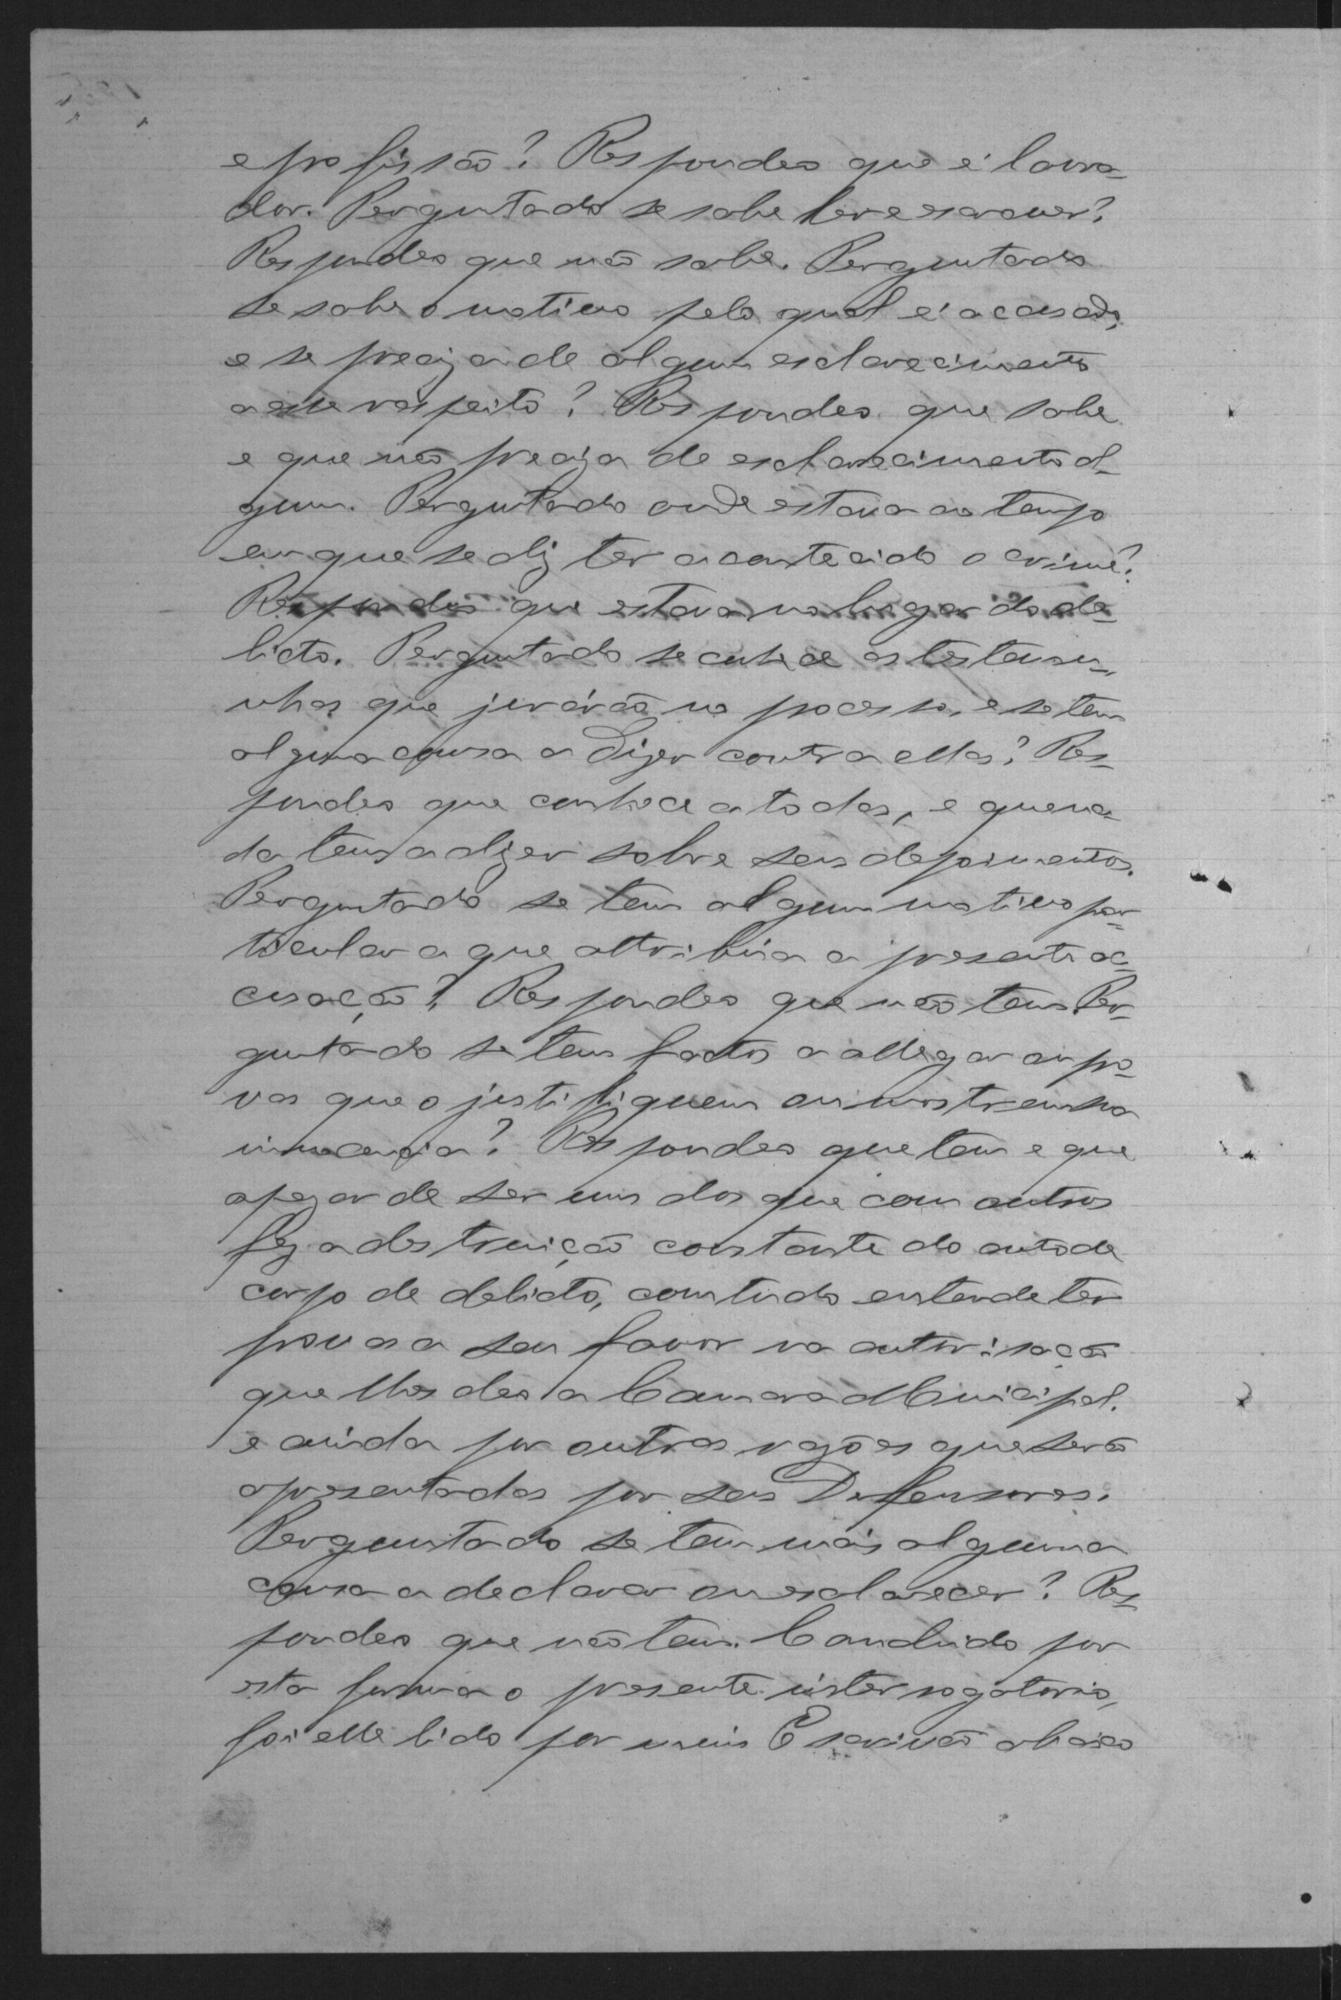 e profissão? Respondeo que é lavra-
dor. Perguntado se sabe ler e escrever?
Respondeo que não sabe. Perguntado
se sabe o motivo pelo qual é accusado,
e se preciza de algum esclarecimento
a esse respeito? Respondeo que sabe
e que não preciza de esclarecimento al-
gum. Perguntado onde estava ao tempo
em que se diz ter acontecido o crime?
Respondeo que estava no lugar do de-
licto. Perguntado se conhece as testemu-
nhas que jurárão no processo, e se tem
alguma cousa a dizer contra ellas? Res-
pondeo que conhece a todas, e que na-
da tem a dizer sobre seus depoimentos.
Perguntado se tem algum motivo par-
ticular a que attribúa a presente ac-
cusação? Respondeo que não tem. Per-
guntado se tem factos a allegar ou pro-
vas que o justifiquem ou mostrem sua
innocencia? Respondeo que tem e que
apezar de ser um dos que com outros
fez a destruição constante do auto de
corpo de delicto, comtudo entende ter
provas a seu favor na autorisação
que lhes deo a Camara Municipal.
e ainda por outras razões que serão
apresentadas por seus Defensores.
Perguntado se tem mais alguma
cousa a declarar ou esclarecer? Res-
pondeo que não tem. Concluido por
esta forma o presente interrogatorio,
foi elle lido por mim Escrivão abaixo